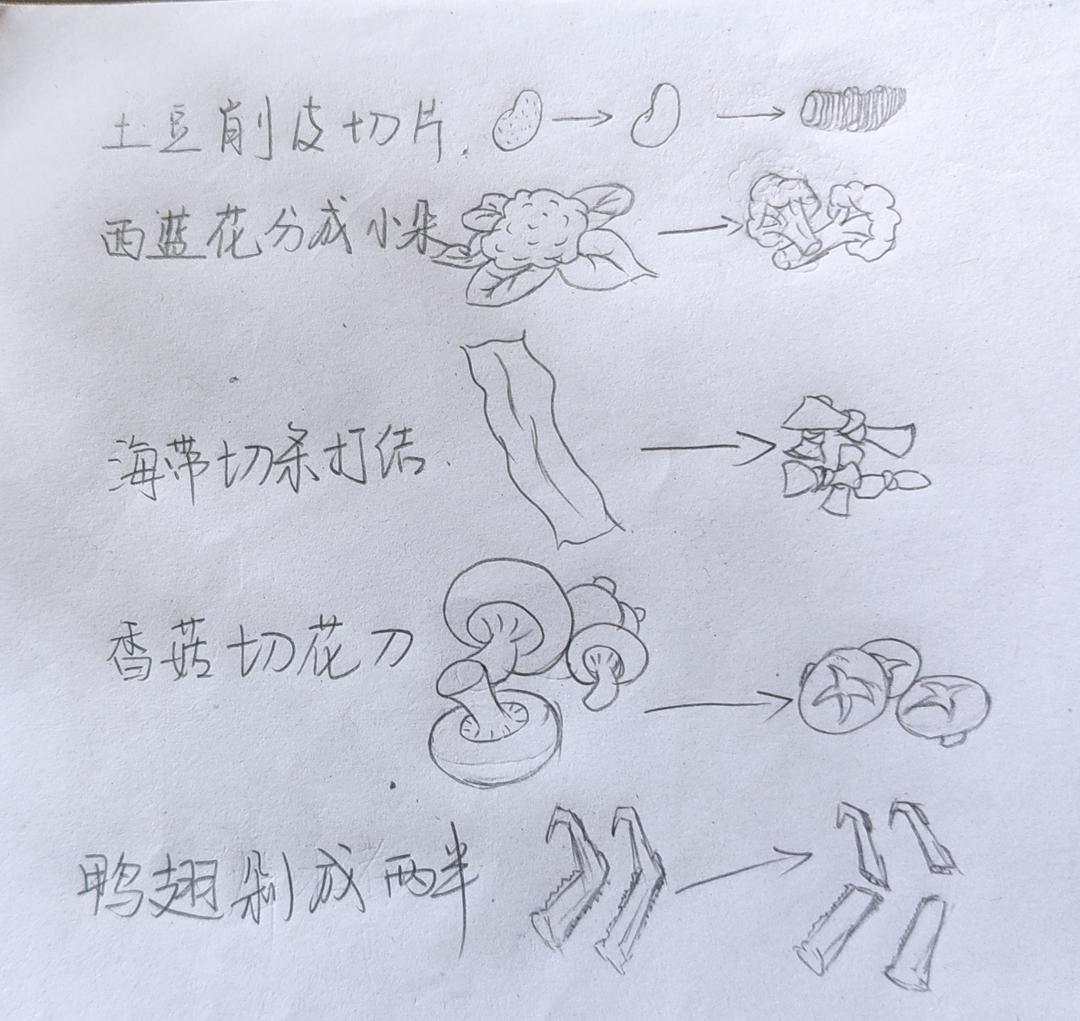 土豆削皮切片.
西蓝花分成小朵
海带切条打结.
香菇切花刀
鸭翅剁成两半